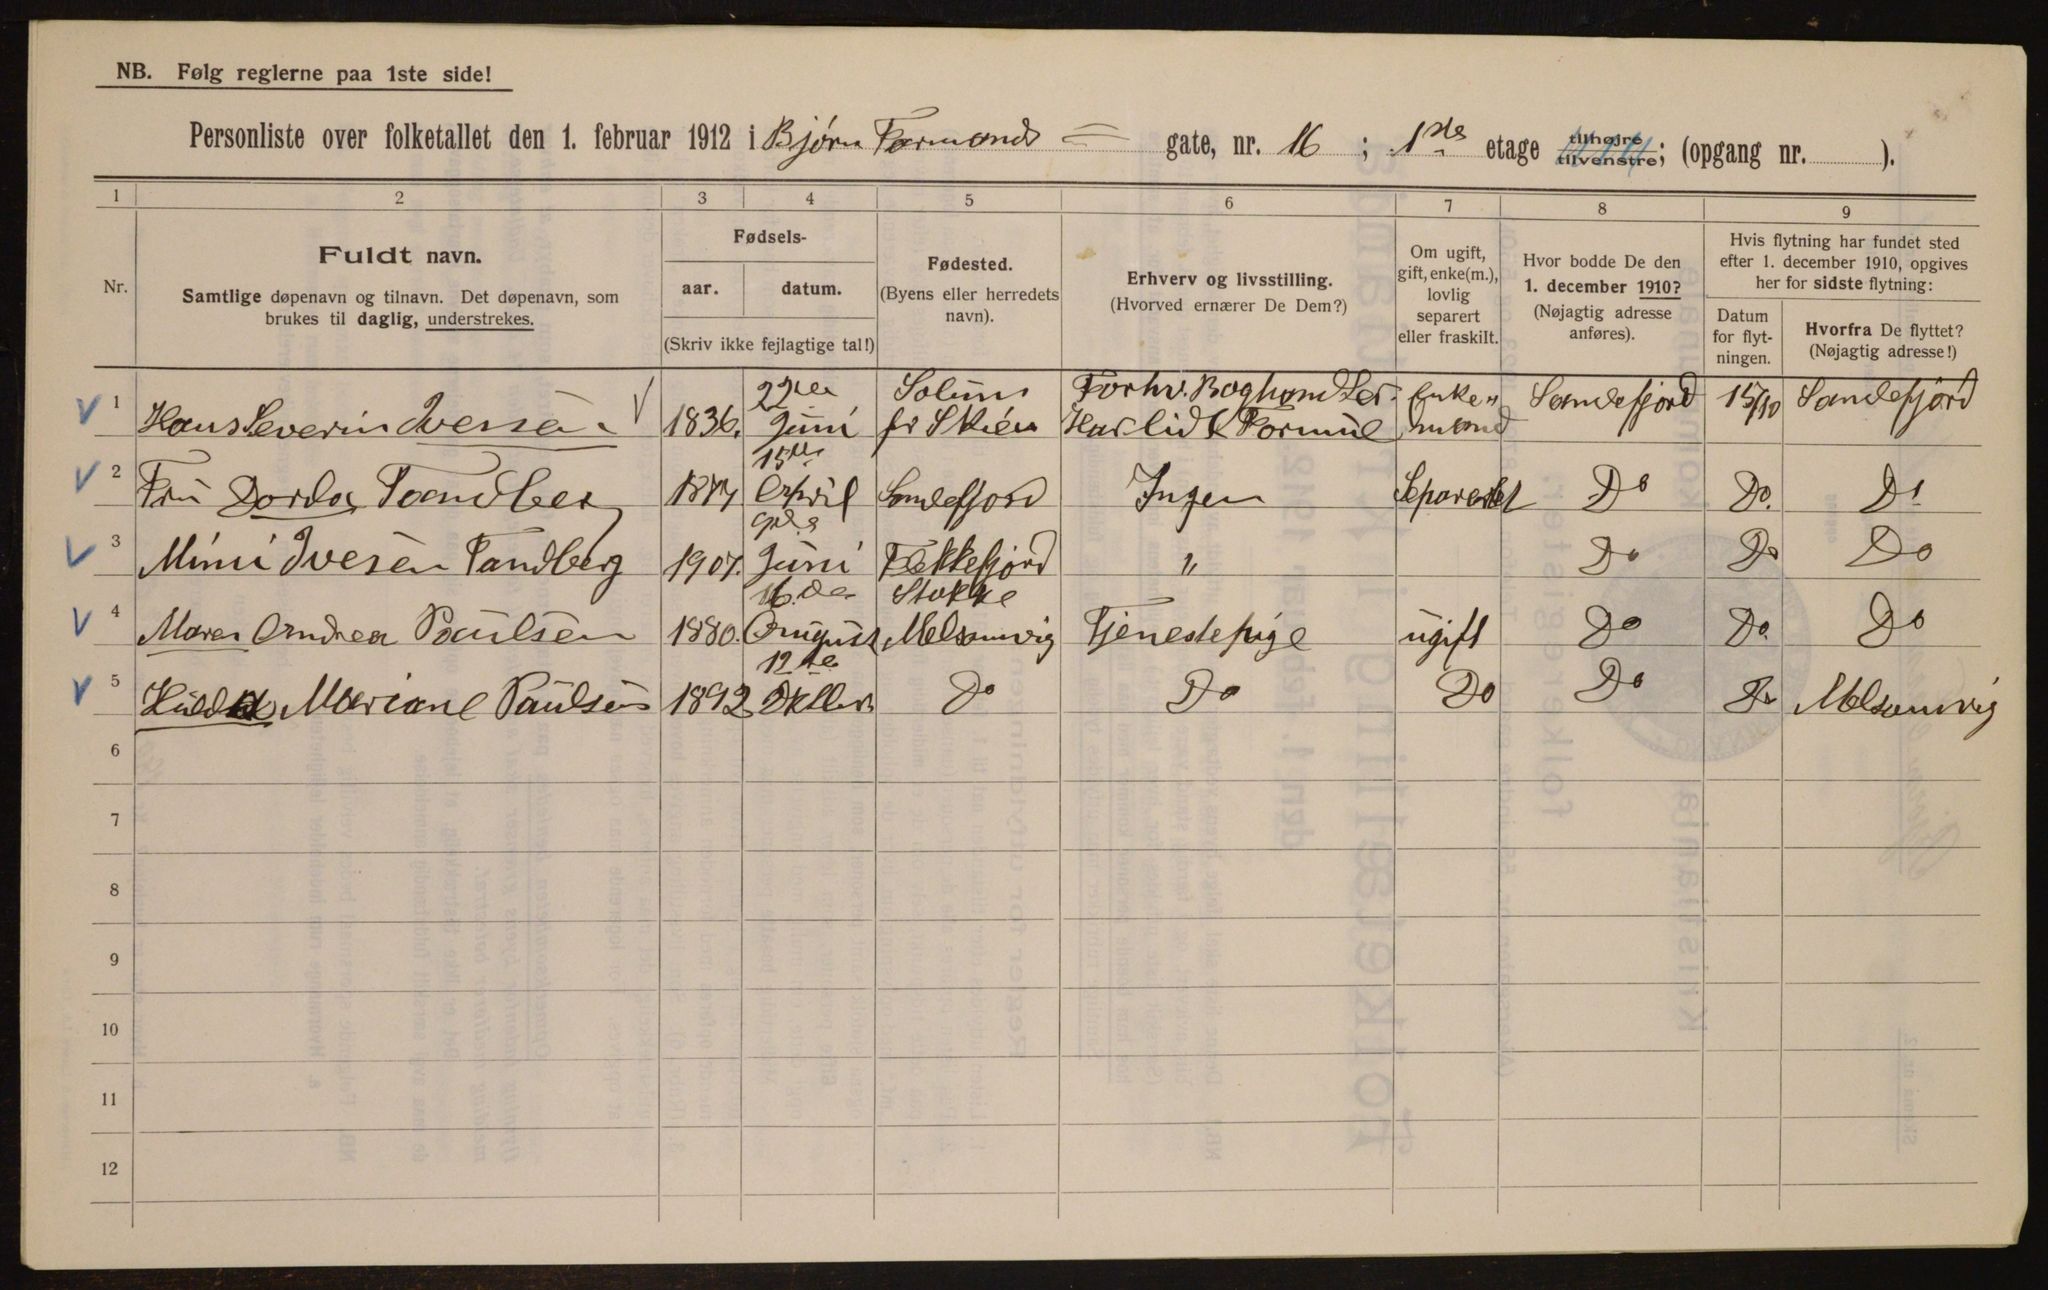 NB. Følg reglerne paa 1ste side!
Personliste over folketallet den 1. februar 1912 i Bjørn Farmands gate, nr. 16 ; 1ste etage tilhøjre tilvenstre; (opgang nr. ).
1 2 3 4 5 6 7 8 9
Nr.
Fuldt navn.
Samtlige døpenavn og tilnavn. Det døpenavn, som
brukes til daglig, understrekes.
Fødsels-
aar. datum.
(Skriv ikke fejlagtige tal!)
Fødested.
(Byens eller herredets
navn).
Erhverv og livsstilling.
(Hvorved ernærer De Dem?)
Om ugift,
gift, enke(m.),
lovlig
separert
eller fraskilt.
Hvor bodde De den
1. december 1910?
(Nøjagtig adresse
anføres).
Hvis flytning har fundet sted
efter 1. december 1910, opgives
her for sidste flytning:
Datum
for flyt-
ningen.
Hvorfra De flyttet?
(Nøjagtig adresse!)
1 Hans Severin Iversen 1836. 22de Juni Solum pr Skien Forhv. Boghandler. Har lidt Formue Enke„ mand Sandefjord 15/10 Sandefjord
2 Fru Dorda Tandberg 1877 15de April Sandefjord Ingen Separeret Do Do. Do
3 Mimi Ivesen Tandberg 1907. Juni Flekkefjord „ Do Do Do
4 Maren Andrea Paulsen 1880. 16.de August Stokke Melsomvig Tjenestepige ugift Do Do. Do
5 Hulda Mariane Paulsen 1892 12te Oktbr Do Do Do Do Do Melsomvig
6
7
8
9
10
11
12